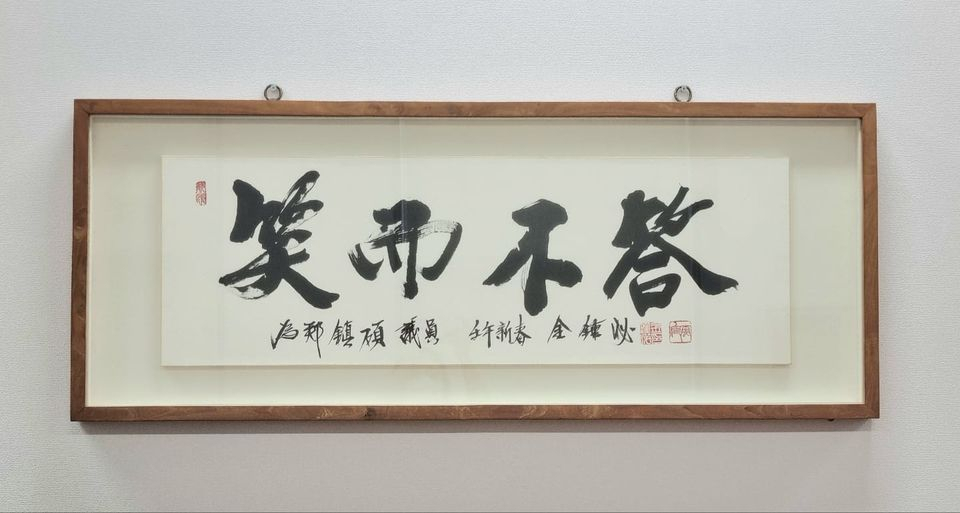 笑而不答
為鄭鎮碩議員 壬午新春 金鍾泌